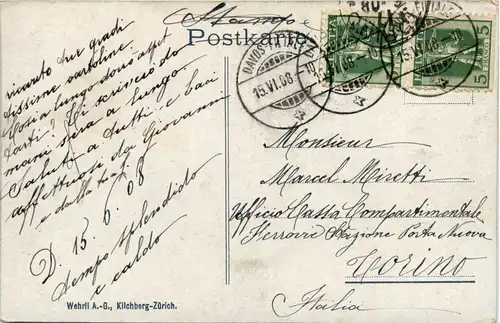 Stampe
Postkarte
80
DAVOS
15.VI.08.-10
15.VI.08.-10
HELVETIA
5
5
vicento tue gradi
tissime cartoline.
Costì a lungo dovrò aspet
tarti? Ti scriverò do
mani sera a lungo.
Saluti a tutti e baci
affettuosi da Giovanni
e dalla tua
D. 15. 6. 08
tempo splendido
e caldo
Monsieur
Marcel Miretti
Ufficio Cassa Compartimentale
Ferrovie Stazione Porta Nuova
Torino
Italia
Wehrli A.-G., Kilchberg-Zürich.